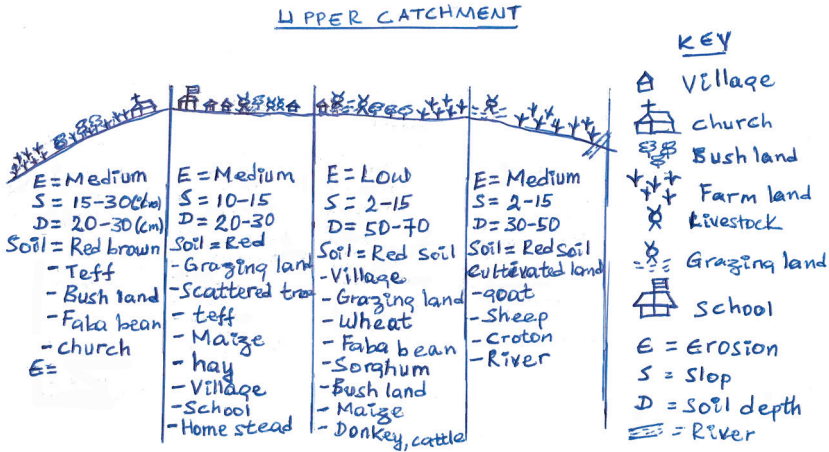 UPPER CATCHMENT
E = Medium
S = 15-30(%)
D = 20-30(cm)
Soil = Red brown
- Teff
- Bush land
- Faba bean
- church
E =
E = Medium
S = 10-15
D = 20-30
Soil = Red
- Grazing land
- Scattered tree
- teff
- Maize
- hay
- Village
- School
- Home stead
E = Low
S = 2-15
D = 50-70
Soil = Red soil
- Village
- Grazing land
- Wheat
- Faba bean
- Sorghum
- Bush land
- Maize
- Donkey, cattle
E = Medium
S = 2-15
D = 30-50
Soil = Red soil
Cultivated land
- goat
- Sheep
- Croton
- River
KEY
Village
church
Bush land
Farm land
Livestock
Grazing land
School
E = Erosion
S = Slop
D = Soil depth
= River